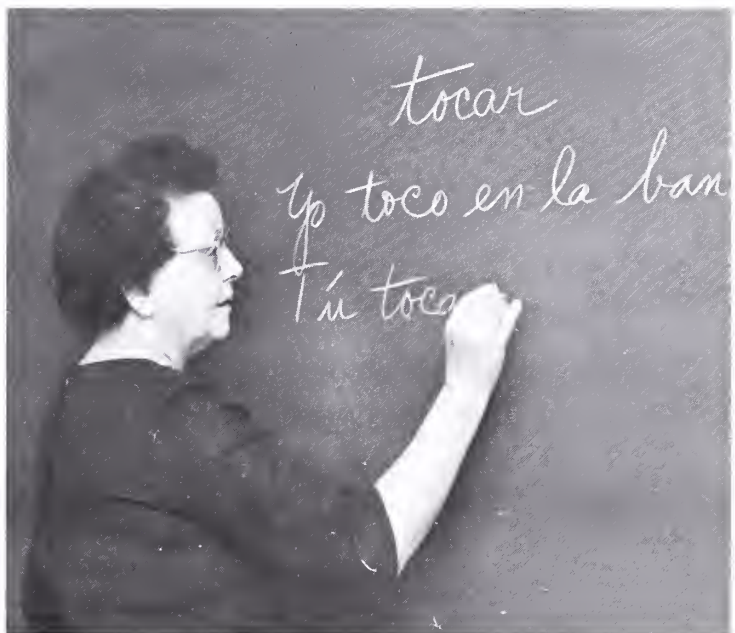 tocar
Yo toco en la ban
Tú toca